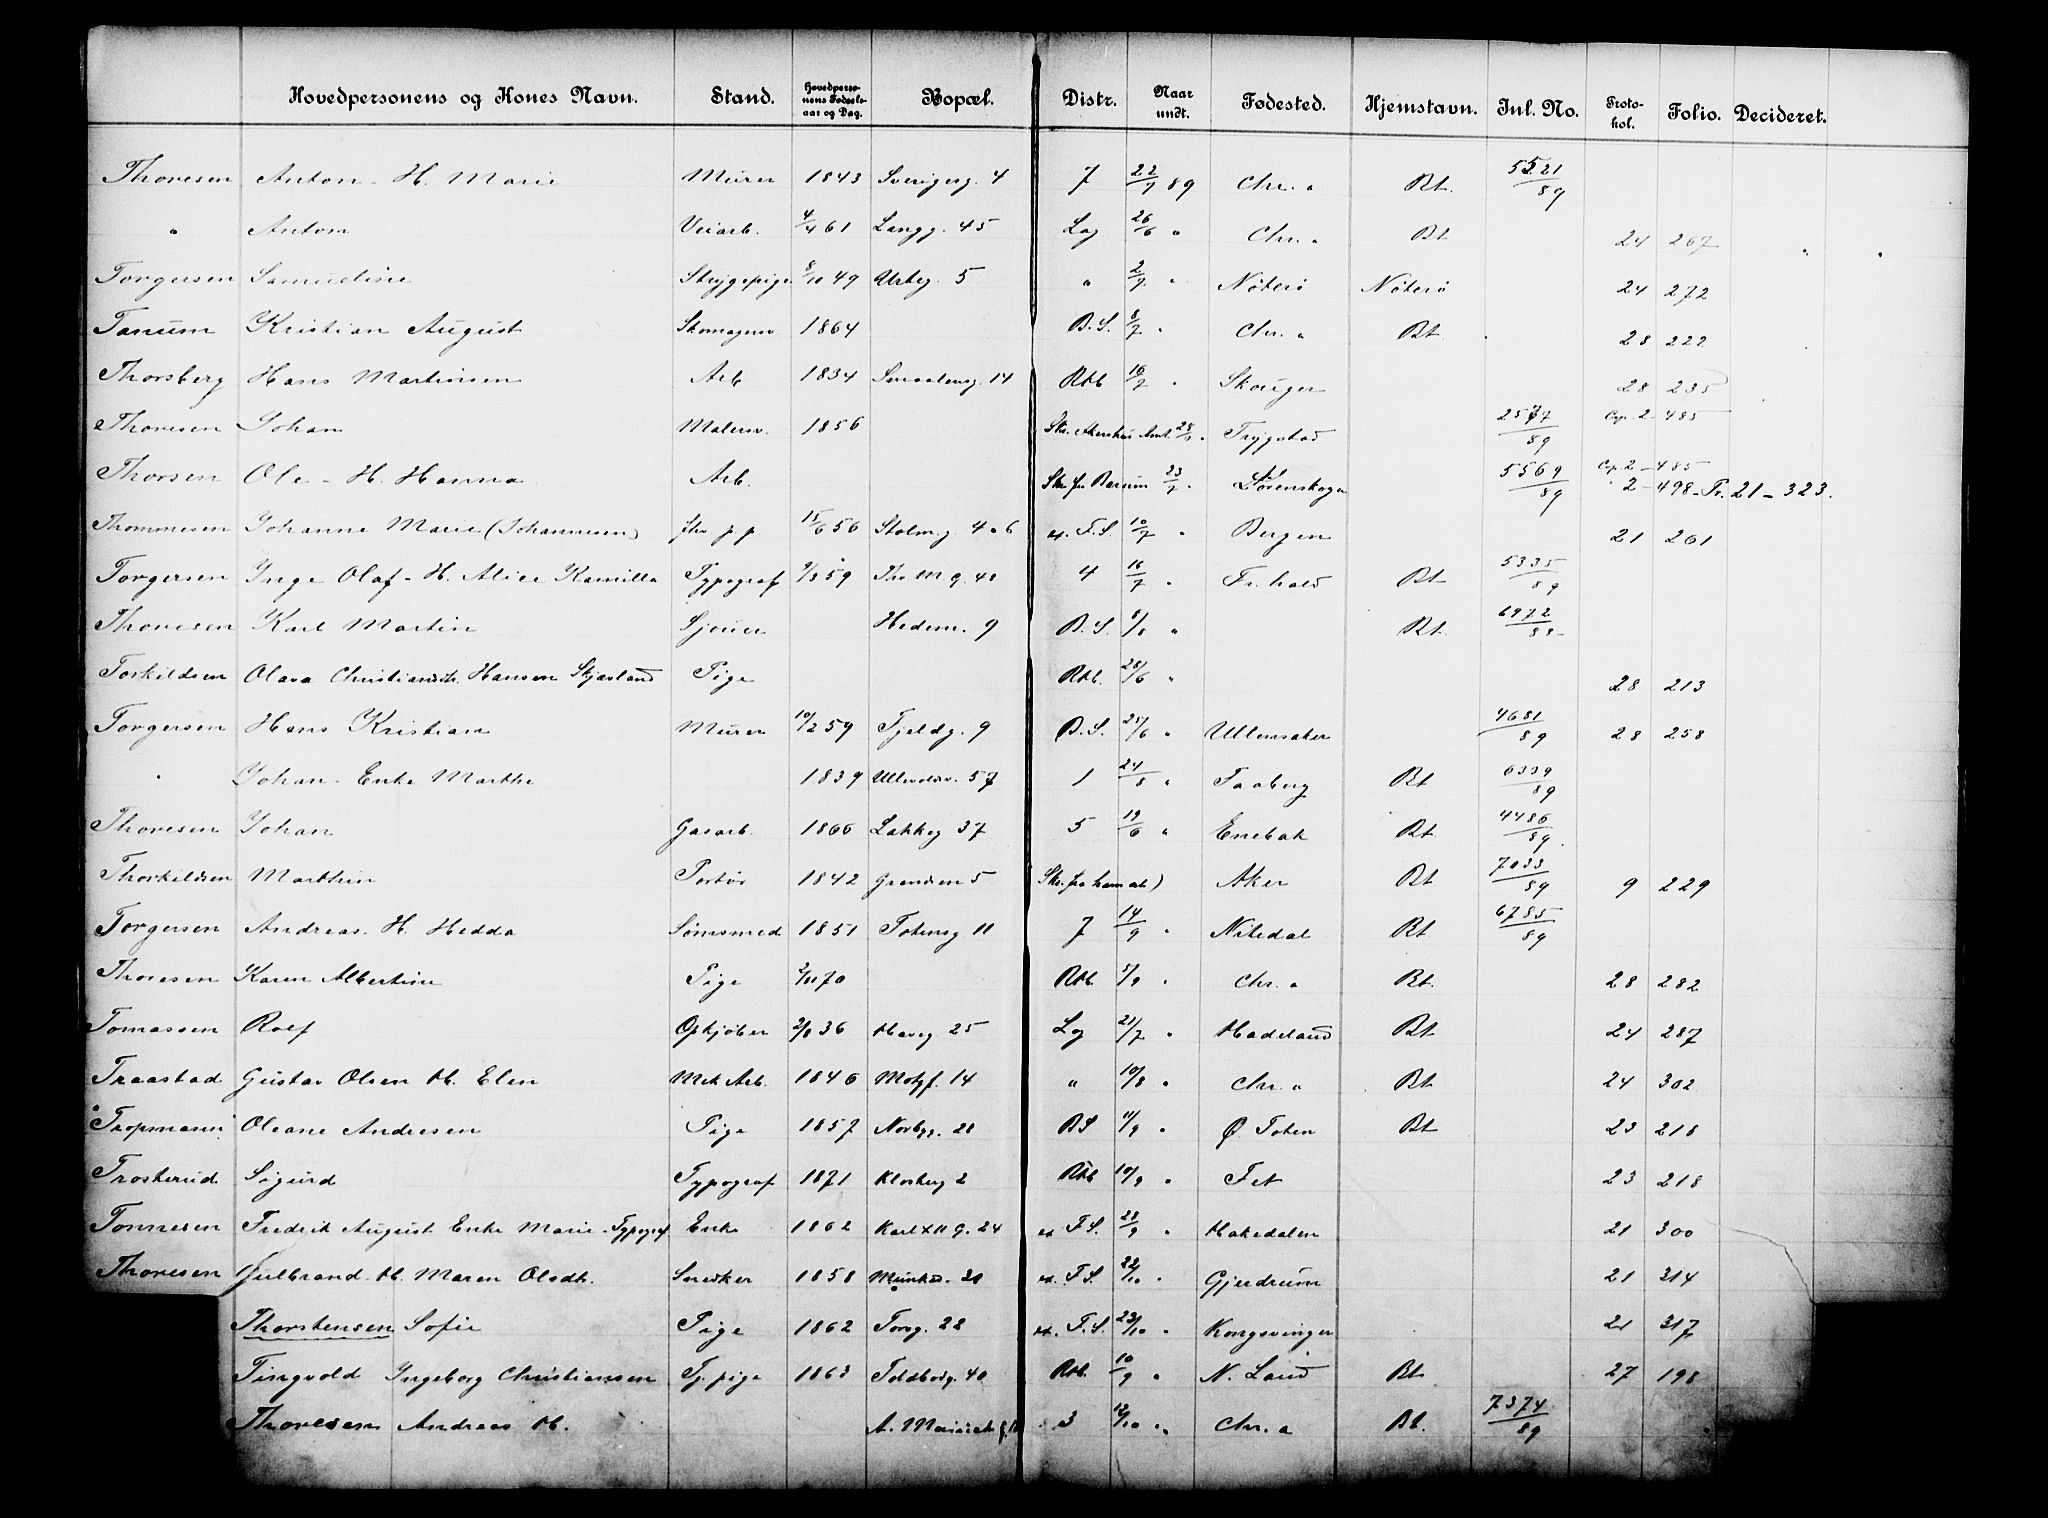 Hovedpersonens og Kones Navn. Stand. Hovedpersonens Fødselsaar og Dag. Bopæl. Distr. Naar undt. Fødested. Hjemstavn. Jnl. No. Protokol. Folio. Decideret.
Thoresen Anton - H. Marie Murer 1843 Sverigesg. 4 7 22/7 89 Chr.a Bt. 5521/89
" Anton Veiarb. 4/4 61 Langg. 45 Lag 26/6 " Chr.a Bt 24 267 " "
Torgersen Samueline Strygepige 8/10 49 Urteg. 5 " 2/7 " Nøterø Nøterø 24 272
Tanum Kristian August Skomagersv 1864 B.S. 8/7 " Chr.a Bt. 28 222
Thorsberg Hans Martinsen Arb 1834 Smaalensg. 14 Rbl 16/7 " Skouger 28 235
Thoresen Johan Malersv. 1856 Skr. Akershus Amt 25/7 " Trygstad 2577/89 Cop. 2 - 485
Thorsen Ole - H. Hanna Arb. Skr. fra Bærum 23/7 " Lørenskogn 5569/89 Cop. 2 - 485
" 2 - 498 - Pr. 21 - 323.
Thommesen Johanne Marie (Johannesen) Fhv p.p 15/6 56 Stolm.g. 4 o 6 ex. F.S. 10/7 " Bergen 21 261
Torgersen Inge Olaf - H. Alice Kamilla Typograf 9/3 59 Ths M g. 40 4 16/7 " Fr.hald Bt 5335/89
Thoresen Karl Martin Sjouer Hedem. 9 B.S. 8/8 " Bt. 6972/88
Torkildsen Olava Christiansdtr. Hansen Skjævland Pige Rbl. 28/6 " 28 213
Torgersen Hans Kristian Murer 10/2 59 Fjeldg. 9 B.S. 25/6 " Ullensaker 4681/89 28 258
" Johan - Enke Marthe 1839 Ullevolsv. 57 1 24/8 " Faaberg Bt 6339/89
Thoresen Johan Gasarb. 1866 Lakkeg 37 5 19/6 " Enebak Bt 4486/89
Thorkildsen Marthin Portør 1842 Grændsen 5 Skr. fra ham sel) Aker Bt 7033/89 9 229
Torgersen Andreas. H. Hedda Sømsmed 1851 Totensg 11 7 14/9 " Nitedal Bt 6785/89
Thoresen Karen Albertine Pige 2/11 70 Rbl. 5/9 " Chr.a Bt. 28 282
Tomassen Rolf Opkjøber 2/8 36 Haveg 25 Lg 21/7 " Hadeland Bt 24 287
Traastad Gustav Olsen H. Elen Mek Arb. 1846 Motzf. 14 " 10/8 " Chr.a Bt 24 302
Tropmann Oleane Andresen Pige 1857 Norbyg. 28 BS 11/9 " Ø. Toten Bt 23 218
Trosterud Sigurd Typograf 1871 Klosterg 2 Rbl 10/9 " Fet 23 218
Tonnesen Fredrik August Enke Marie - Typograf Enke 1862 Karl XII G. 24 ex F.S. 28/9 " Hakedalen 21 300
Thoresen Gulbrand H. Maren Olsdtr. Snedker 1858 Munked. 21 ex. F.S. 22/10 " Gjerdrum 21 314
Thorstensen Sofie Pige 1862 Torvg. 22 ex. F.S. 23/10 " Kongsvinger 21 317
Tingvold Ingeborg Christiansen Tj.pige 1863 Toldbodg. 40 Rbl. 10/9 " N. Land Bt 27 198
Thoresen Andreas H. 3 12/10 " Chr.a Bt. 7374/89